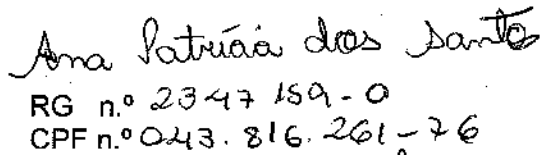 Ana Patricia dos Santo
RG n.º 2347159-0
CPF n.º 043.816.261-76